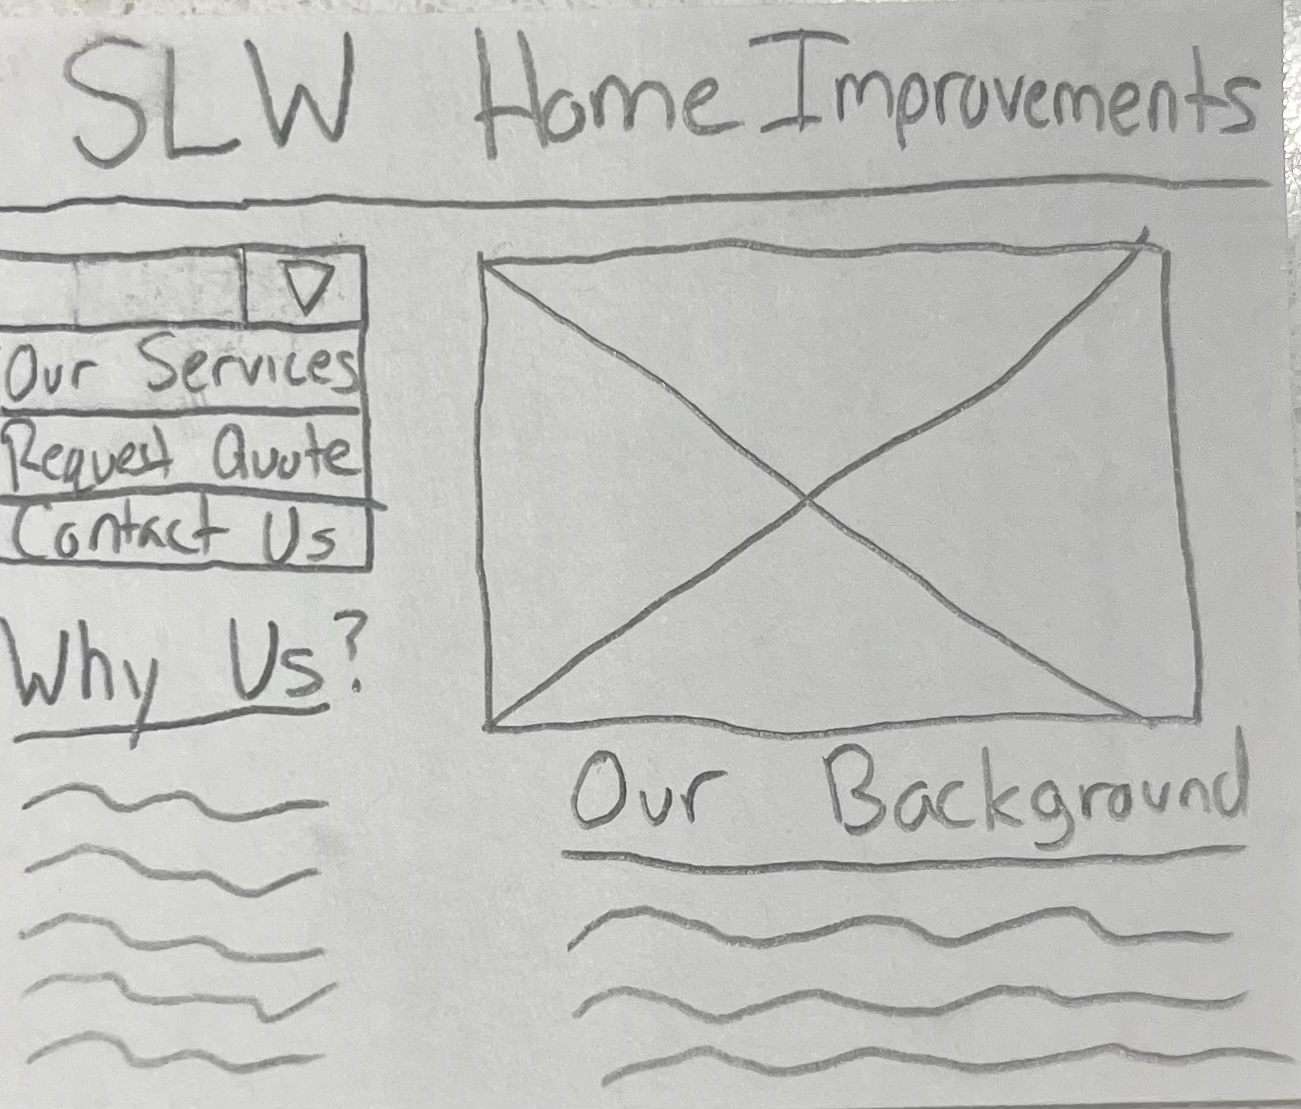 SLW Home Improvements
Our Services
Request Quote
Contact Us
Why Us?
Our Background